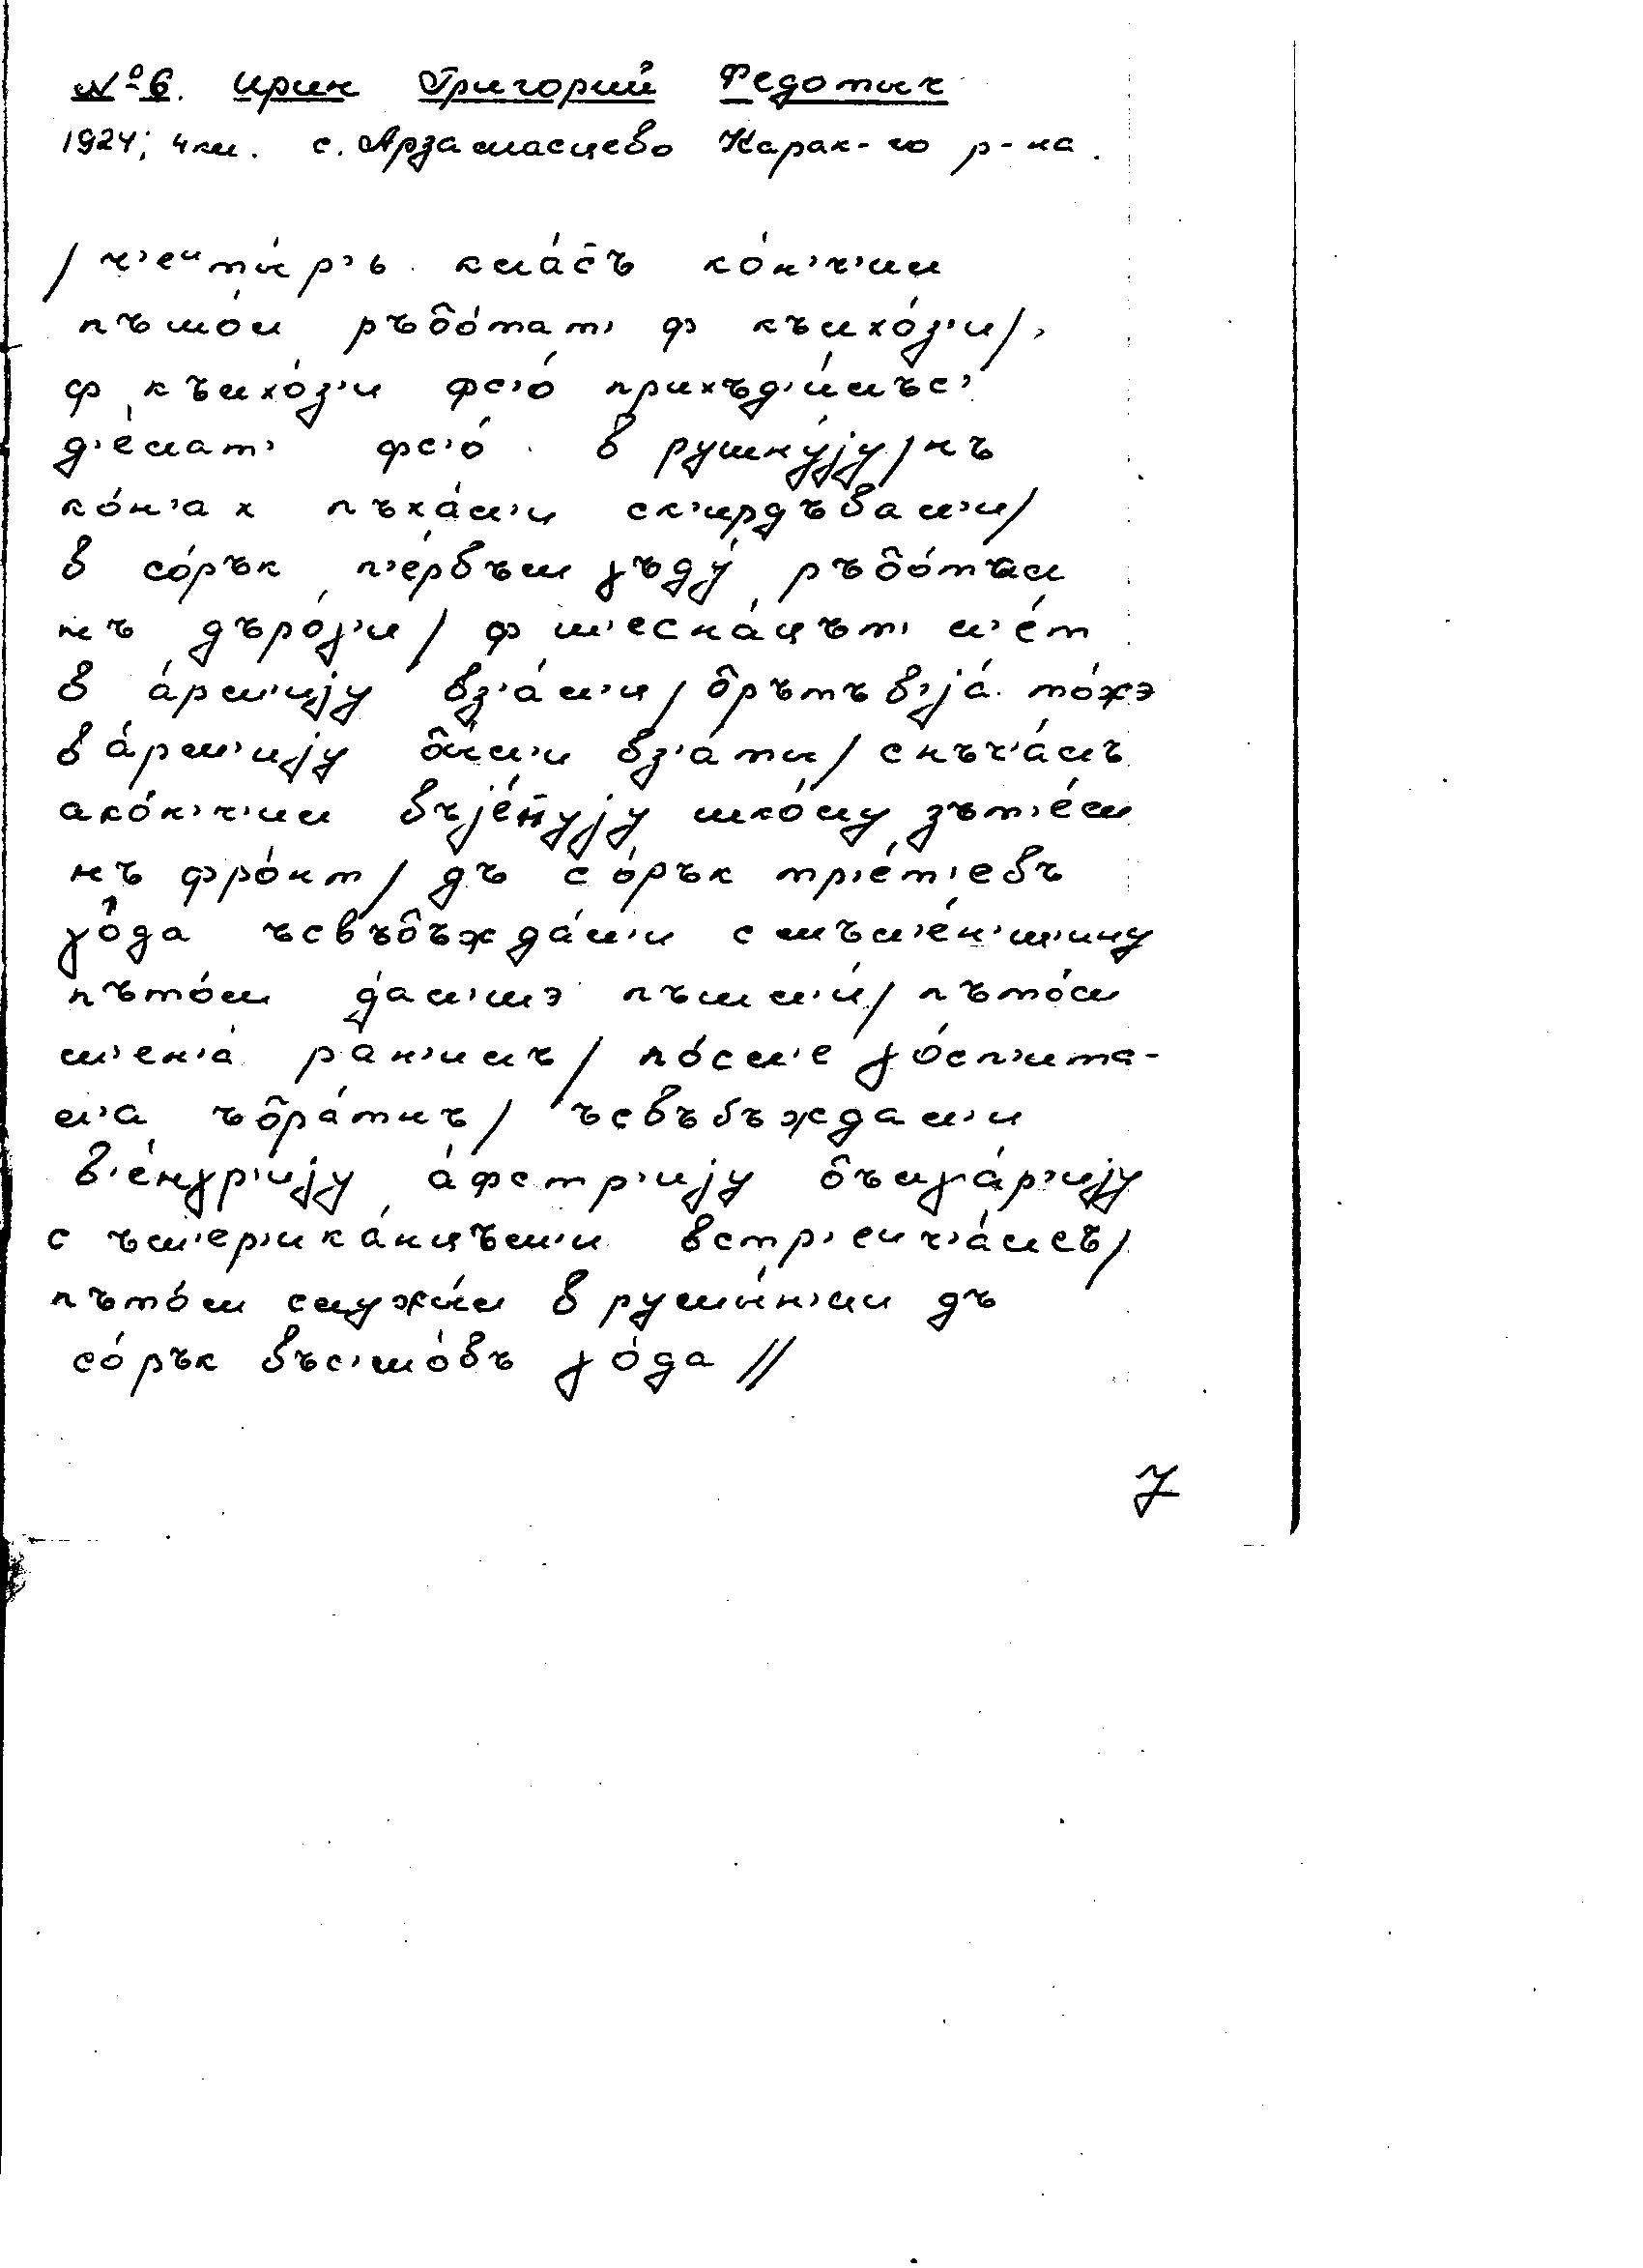 № 6. Ирин Григорий Федотыч
1924; 4 кл. с. Арзамасцево Карак-го р-на.
/ ч'еиты́р'ь кла́с̄ъ ко́н'ч'ил
пъшо́л ръбо́тат' ф кълхо́з'и/,
ф кълхо́з'и фс'о́ прихъд'и́лъс'
д'е́лат' фс'о́ в рушну́jу/ нъ
ко́н'ах пъха́л'и ск'ирдъвал'и/
в со́рък п'е́рвъм γъду́ ръбо́тъл
нъ дъро́γ'и/ ф ш'есна́цът' л'е́т
в а́рм'иjу вз'а́л'и/ брътъв'jа́ то́жэ
в а́рм'иjу бы́л'и вз'а́ты/ снъч'а́лъ
ако́н'ч'ил въjе́н̄уjу шко́лу зът'е́м
нъ фро́нт/ дъ со́рък тр'е́т'евъ
γо́да ъсвъбъжда́л'и смъл'е́н'ш'ину
пъто́м да́л'шэ пъшл'и́/ пъто́м
м'ен'а́ ра́н'илъ/ по́сл'е γо́сп'ита-
л'а ъбра́тнъ/ ъсвъбъждал'и
в'е́нγр'иjу а́фстр'иjу бълγа́р'иjу
с ъм'ер'ика́нцъм'и встр'еич'а́лсъ/
пъто́м служы́л в румы́н'ии дъ
со́рък въс'мо́въ γо́да //
7